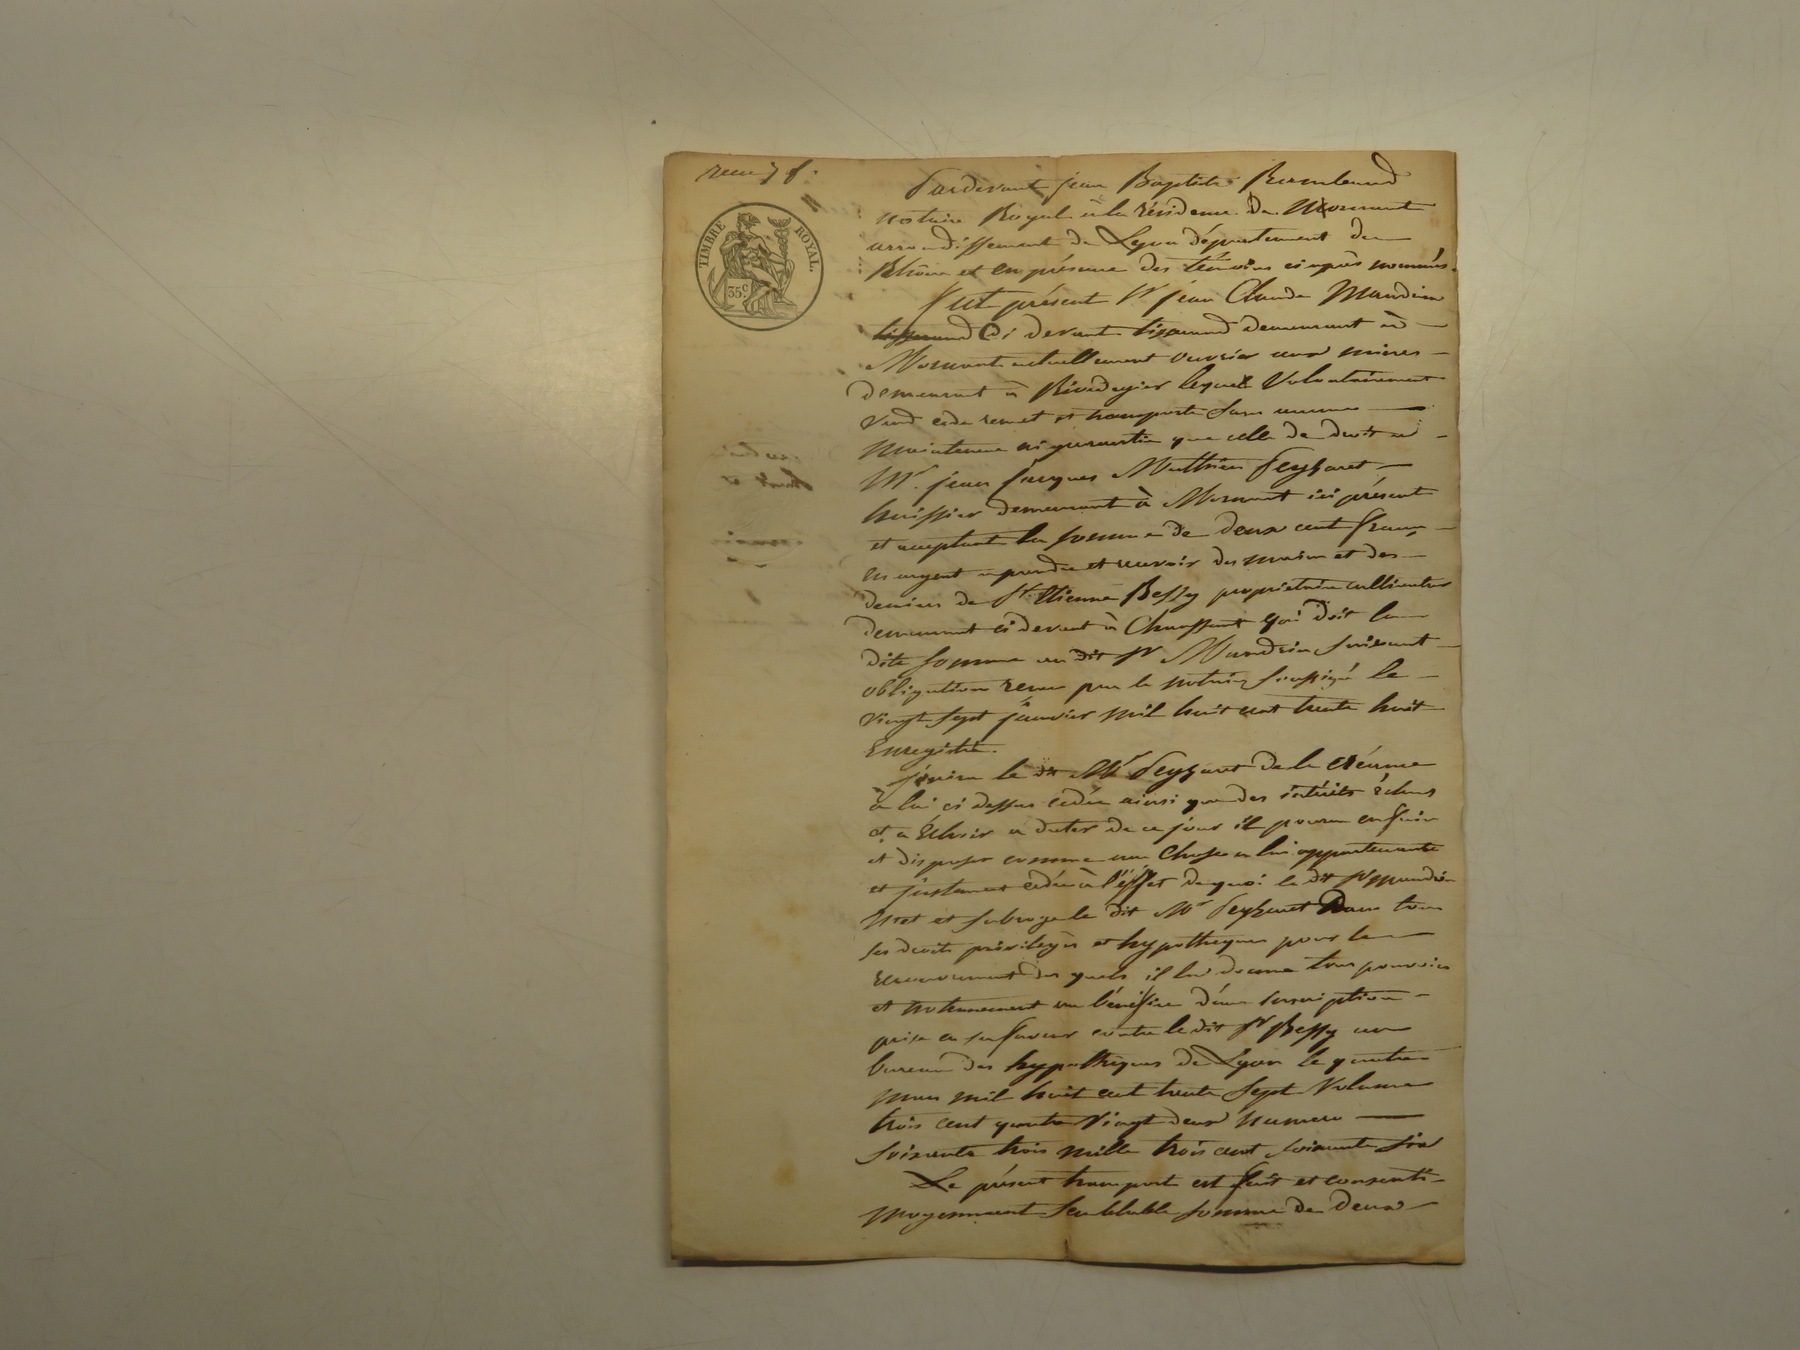 TIMBRE ROYAL.
35 c.
Pardevant jean Baptiste
notaire Royal à la résidence de Mornant
arrondissement de Lyon département du
Rhône et en présence des témoins ci après nommés.
fut présent Sr jean Claude Mandrin
tisserand Ci devant tisserand demeurant à
Mornant actuellement ouvrier aux mines
demeurant à Rivedegier lequel Volontairement
vend cede remet et transporte sans aucune
maintenue ni garantie que celle de droit à
Mr. jean jacques Matthieu Peyzaret
huissier demeurant à Mornant ici présent
et acceptant la somme de deux cent francs
en argent a prendre et recevoir des mains et des
deniers de Sr. Etienne Bessy propriétaire cultivateur
demeurant ci devant à Chaussant qui doit la
dite somme au dit Sr Mandrin suivant
obligation recue par le notaire soussigné le
vingt sept janvier mil huit cent trente huit
Enregistré.
jouira le dit Mr Peyzaret de la créance
à lui ci dessus cédée ainsi que des intérêts échus
et a Echoir à dater de ce jour il pourra en jouir
et disposer comme une Chose a lui appartenante
et justement cédée à l'éffet de quoi le dit Sr Mandrin
met et subroge le dit Mr Peyzaret Dans tous
ses droits privilèges et hypotheques pour le
recouvrement des quels il lui donne tous pouvoirs
et notamment au bénéfice d'une inscription
prise en sa faveur contre le dit Sr Bessy au
bureau des hypotheques de Lyon le quatre
mars mil huit cent trente sept Volume
trois cent quatre Vingt deux numero
soixante trois mille trois cent soixante six
Le présent transport est fait et consenti
moyennant semblable somme de deux